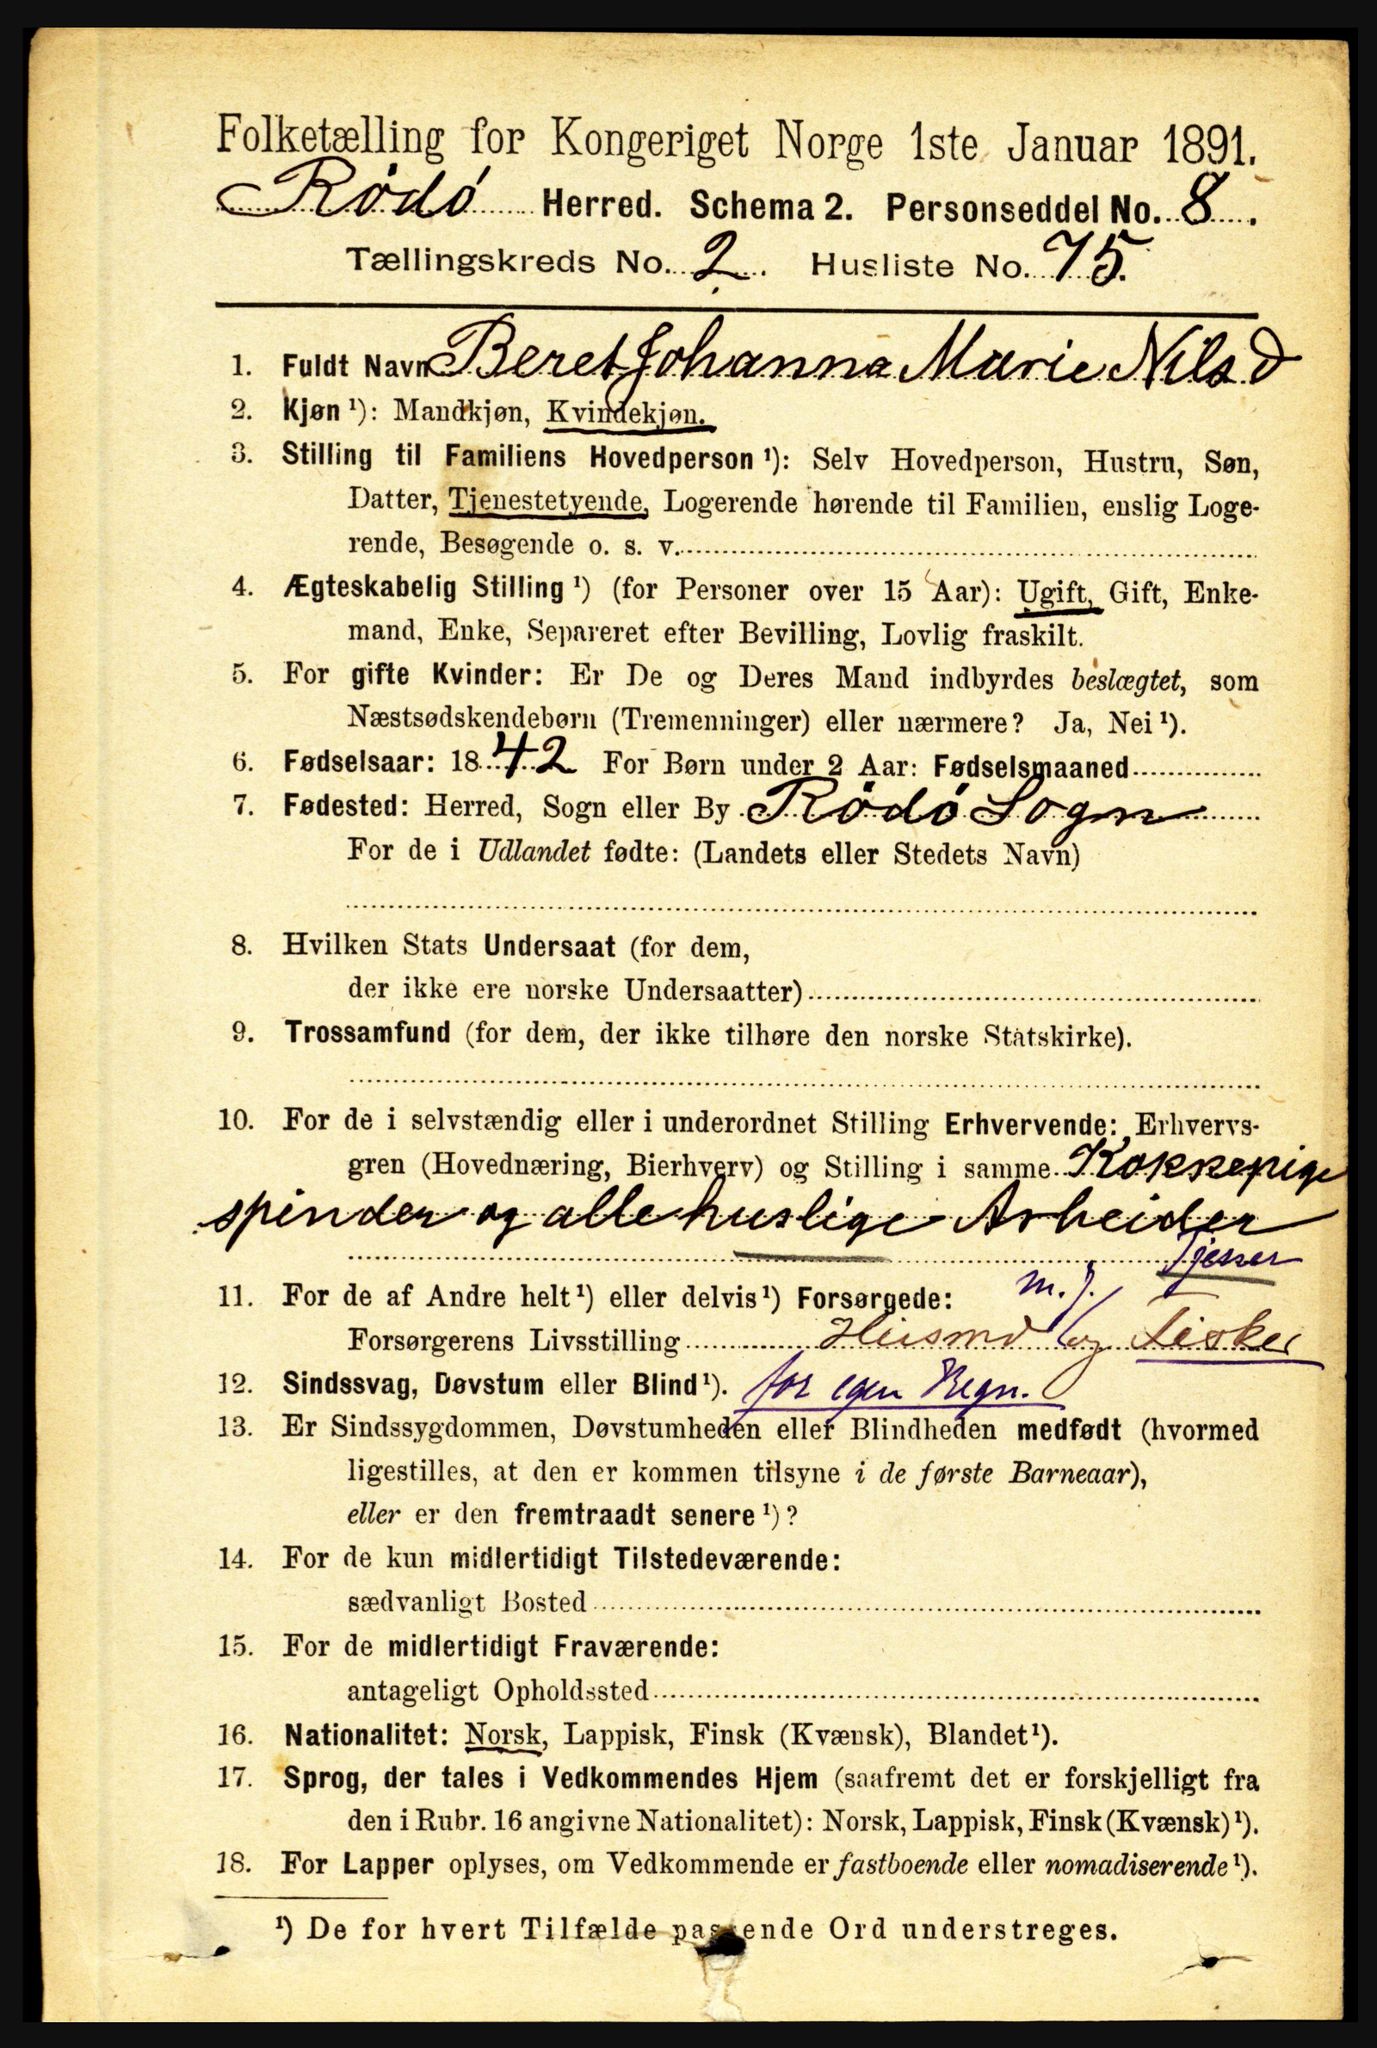 Folketælling for Kongeriget Norge 1ste Januar 1891.
Rödö Herred. Schema 2. Personseddel No. 8.
Tællingskreds No. 2. Husliste No. 75.
1. Fuldt Navn Beret Johanna Marie Nilsd
2. Kjøn ¹): Mandkjøn, Kvindekjøn.
3. Stilling til Familiens Hovedperson ¹): Selv Hovedperson, Hustru, Søn,
Datter, Tjenestetyende, Logerende hørende til Familien, enslig Loge-
rende, Besøgende o. s. v.
4. Ægteskabelig Stilling ¹) (for Personer over 15 Aar): Ugift, Gift, Enke-
mand, Enke, Separeret efter Bevilling, Lovlig fraskilt.
5. For gifte Kvinder: Er De og Deres Mand indbyrdes beslægtet, som
Næstsødskendebørn (Tremenninger) eller nærmere? Ja, Nei ¹).
6. Fødselsaar: 1842 For Børn under 2 Aar: Fødselsmaaned
7. Fødested: Herred, Sogn eller By Rödö Sogn
For de i Udlandet fødte: (Landets eller Stedets Navn)
8. Hvilken Stats Undersaat (for dem,
der ikke ere norske Undersaatter)
9. Trossamfund (for dem, der ikke tilhøre den norske Statskirke).
10. For de i selvstændig eller i underordnet Stilling Erhvervende: Erhvervs-
gren (Hovednæring, Bierhverv) og Stilling i samme Kokkepige
spinder og alle huslige Arbeider
Tjener
11. For de af Andre helt ¹) eller delvis ¹) Forsørgede: m. J.
Forsørgerens Livsstilling Husmd og Fisker
12. Sindssvag, Døvstum eller Blind ¹). for egen Regn.
13. Er Sindssygdommen, Døvstumheden eller Blindheden medfødt (hvormed
ligestilles, at den er kommen tilsyne i de første Barneaar),
eller er den fremtraadt senere ¹)?
14. For de kun midlertidigt Tilstedeværende:
sædvanligt Bosted
15. For de midlertidigt Fraværende:
antageligt Opholdssted
16. Nationalitet: Norsk, Lappisk, Finsk (Kvænsk), Blandet ¹).
17. Sprog, der tales i Vedkommendes Hjem (saafremt det er forskjelligt fra
den i Rubr. 16 angivne Nationalitet): Norsk, Lappisk, Finsk (Kvænsk) ¹).
18. For Lapper oplyses, om Vedkommende er fastboende eller nomadiserende ¹).
¹) De for hvert Tilfælde passende Ord understreges.